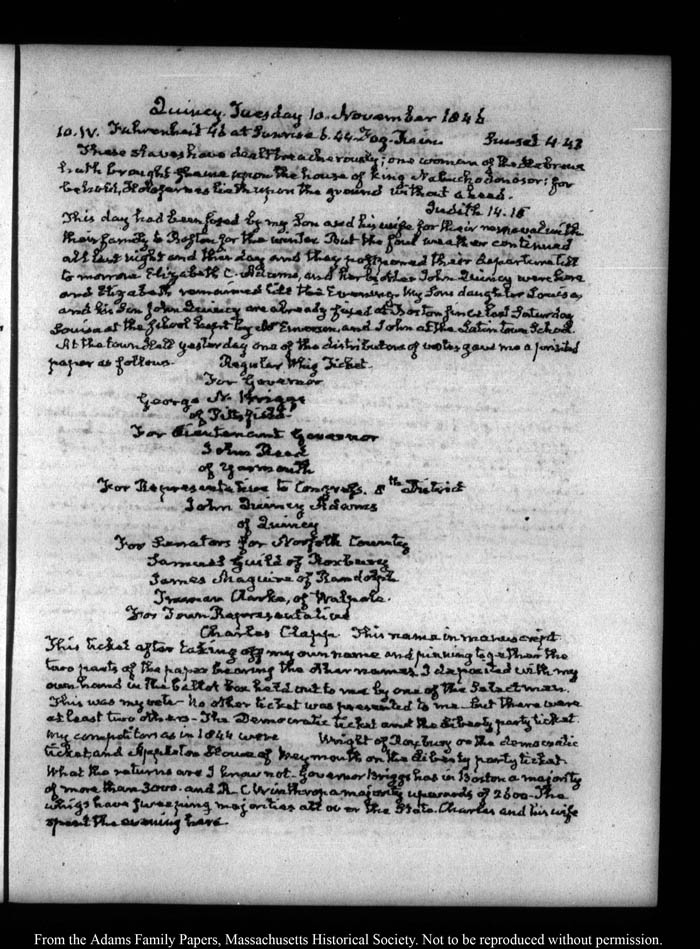 Quincy. Tuesday 10. November 1846
10. IV. Fahrenheit 46 at Sunrise 6.44. Fog. Rain. Sunset 4.43
These slaves have dealt treacherously; one woman of the Hebrews
hath brought shame upon the house of king Nabuchodonosor: for
behold, Holofernes lieth upon the ground without a head.
Judith 14.18
This day had been fixed by my Son and his wife for their removal with
their family to Boston for the winter. But the foul weather continued
all last night and this day and they postponed their departure till
to morrow. Elizabeth C. Adams, and her brother John Quincy were here
and Elizabeth remained till the Evening. My Sons daughter Louisa,
and his Son John Quincy are already fixed at Boston since last Saturday
Louisa at the School kept by Mr Emerson, and John at the Latin town School.
At the town Hall yesterday one of the distributors of votes gave me a printed
paper as follows. Regular Whig Ticket.
For Governor
George N. Briggs
of Pittsfield
For Lieutenant Governor
John Reed
of Yarmouth
For Representative to Congress. 8th District
John Quincy Adams
of Quincy
For Senators for Norfolk County
Samuel Guild of Roxbury
James Maguire of Randolph
Truman Clarke, of Walpole.
For Town Representative
Charles Clapp This name in manuscript
This ticket after taking off my own name and pinning together the
two parts of the paper bearing the other names. I deposited with my
own hand in the ballot box held out to me by one of the Select men.
This was my vote. No other ticket was presented to me. but there were
at least two others. The Democratic ticket and the liberty party ticket.
My competitors as in 1844 were Wright of Roxbury on the democratic
ticket, and Appleton Howe of Weymouth on the liberty party ticket.
What the returns are I know not. Governor Briggs has in Boston a majority
of more than 3000. and R. C. Winthrop a majority upwards of 2600. The
whigs have sweeping majorities all over the State. Charles and his wife
spent the evening here.
From the Adams Family Papers, Massachusetts Historical Society. Not to be reproduced without permission.